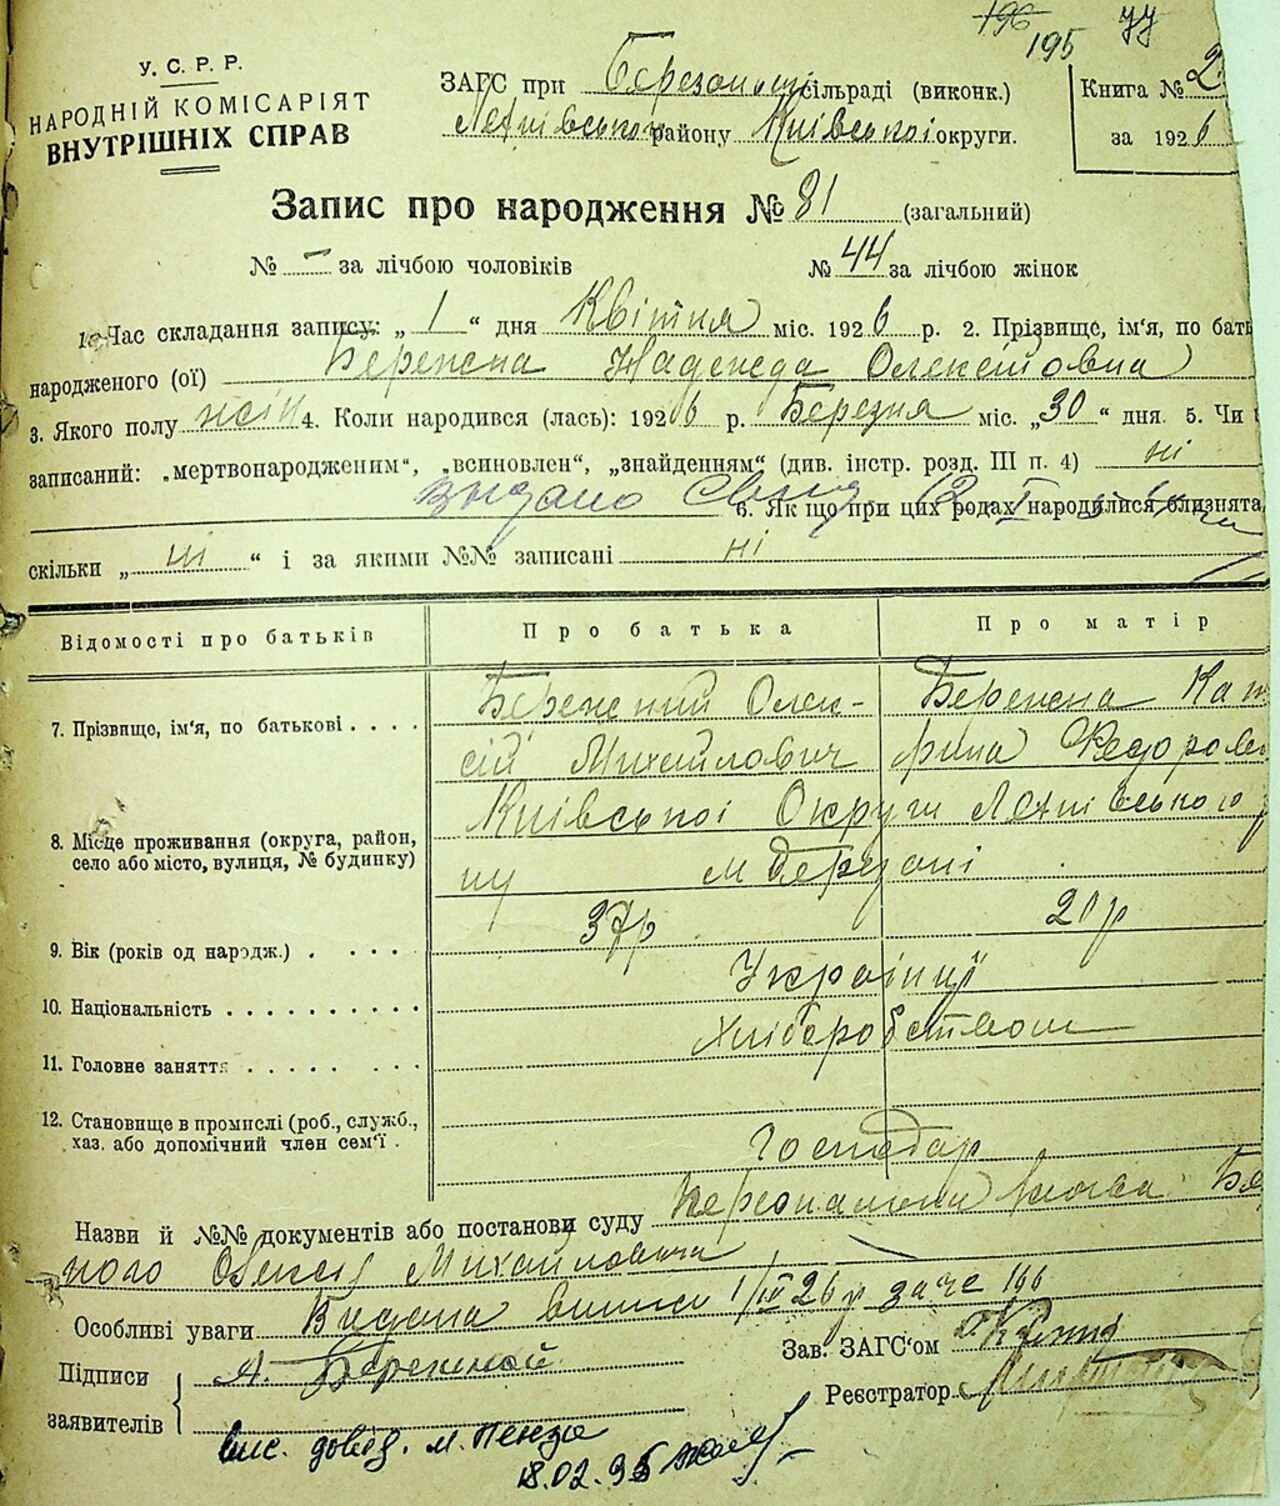 196 195 77
У. С. Р. Р.
НАРОДНІЙ КОМІСАРІЯТ
ВНУТРІШНІХ СПРАВ
ЗАГС при Березанській сільраді (виконк.)
району Київської округи.
Книга № 2
за 1926
Запис про народження № 81 (загальний)
№ – за лічбою чоловіків № 44 за лічбою жінок
1. Час складання запису: „ 1 “ дня Квітня міс. 1926 р. 2. Прізвище, ім‘я, по бать
народженого (ої) Бережна Надежда Олексіївна
3. Якого полу жін 4. Коли народився (лась): 1926 р. Березня міс. „30“ дня. 5. Чи
записаний: „мертвонародженим“, „всиновлен“, „знайденням“ (див. інстр. розд. III п. 4) ні
видано
6. Як що при цих родах народилися близнята
скільки „ ні “ і за якими №№ записані ні
Відомості про батьків Про батька Про матір
7. Прізвище, ім‘я, по батькові . . . . Бережний Олек- Бережна Кат
сій Михайлович рина Федоров
Київської Округи
8. Місце проживання (округа, район,
село або місто, вулиця, № будинку)
ну м Березані
9. Вік (років од народж.) . . . . 37р 20р
10. Національність . . . . . . . . . . Українці
11. Головне заняття . . . . . . . . Хліборобством
12. Становище в промислі (роб., служб.,
хаз. або допомічний член сем‘ї . Господар
Назви й №№ документів або постанови суду Бе
ного Олексія Михайловича
Особливі уваги Видана 1/IV 26 р за № 166
Підписи заявителів А. Бережной
Зав. ЗАГС‘ом
Реєстратор
вис. довід. м. Пенза
18.02.95